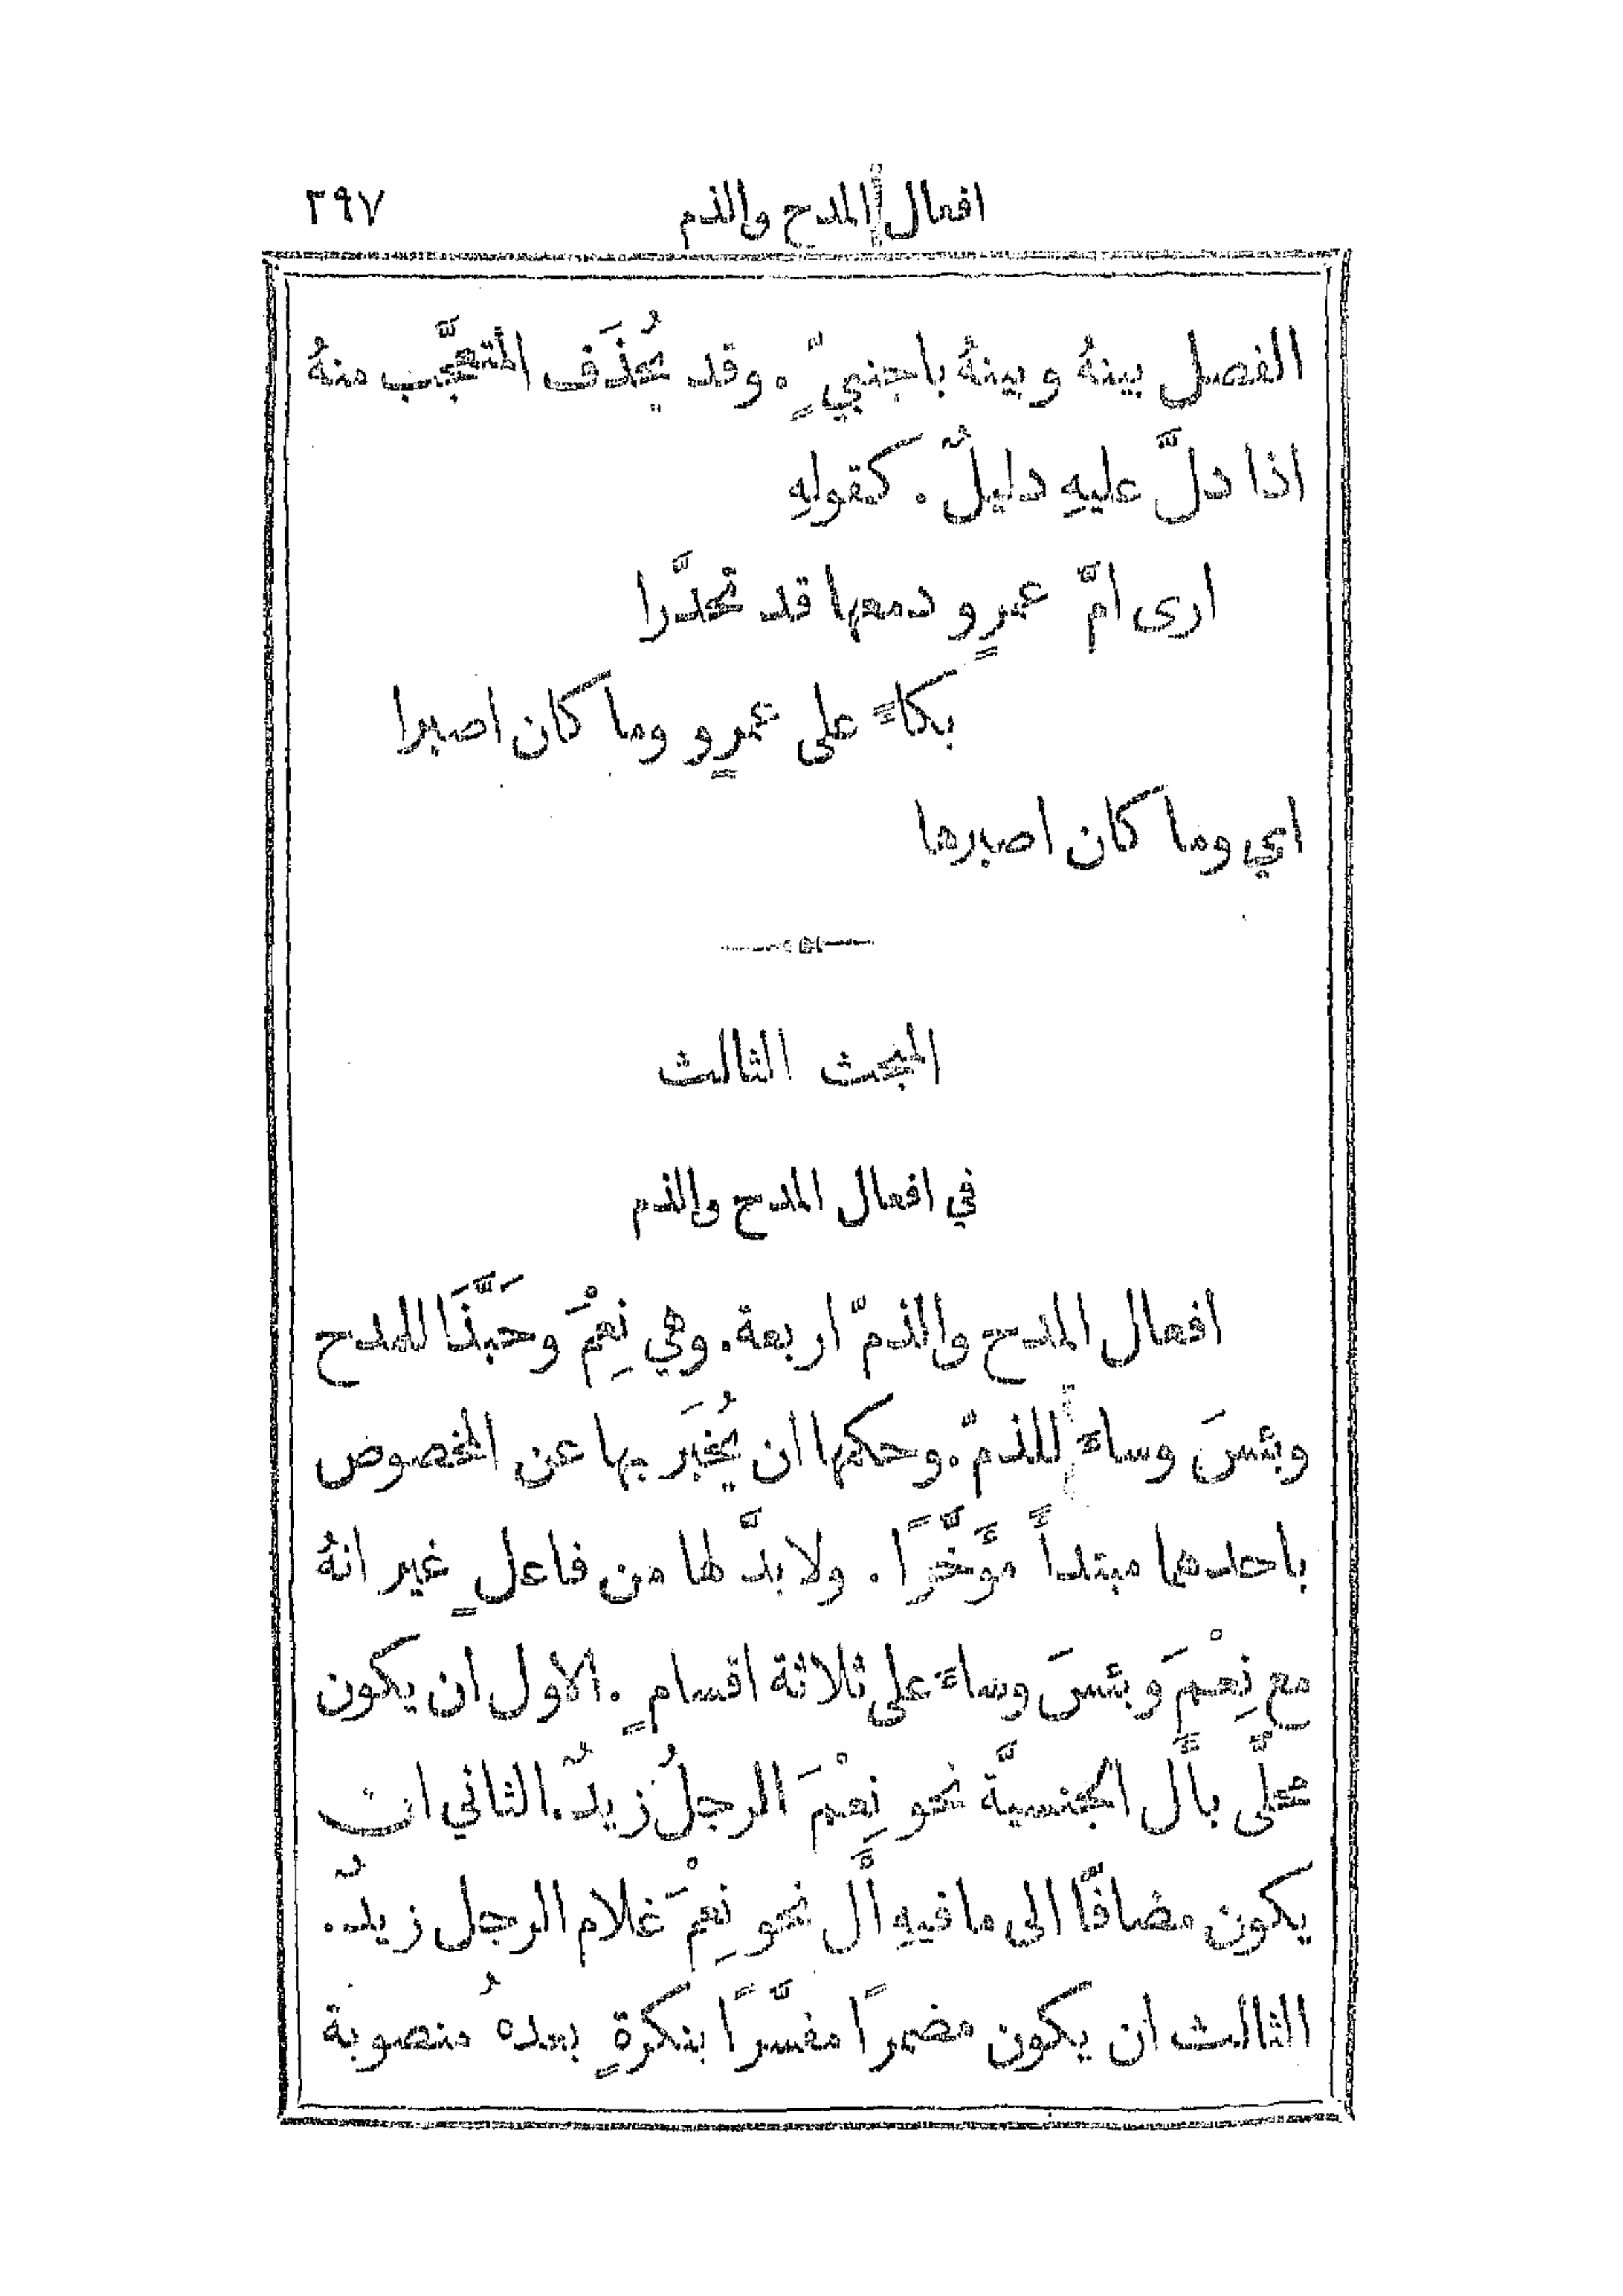 افعال المدح والذم ٢٩٧
الفصل بينهُ وبينهُ باجنبيٍّ. وقد يُحذَف المتعجَّب منهُ
اذا دلَّ عليهِ دليلٌ. كقولهِ
ارى امّ عمرٍو دمعها قد تحدَّرا
بكاءً على عمرٍو وما كان اصبرا
اي وما كان اصبرها
المبحث الثالث
في افعال المدح والذم
افعال المدح والذمّ اربعة. وهي نِعْمَ وحَبَّذَا للمدح
وبئسَ وساءَ للذمّ. وحكمها ان يُخبَر بها عن المخصوص
باحدهما مبتدأً مؤَخَّرًا. ولا بدَّ لها من فاعلٍ غير انهُ
مع نِعْمَ وبئسَ وساءَ على ثلاثة اقسامٍ. الاول ان يكون
محلًّى بأَل الجنسيَّة نحو نِعْمَ الرجلُ زيدٌ. الثاني ان
يكون مضافًا الى ما فيهِ أَل نحو نِعْمَ غلام الرجل زيدٌ.
الثالث ان يكون مضمرًا مفسَّرًا بنكرةٍ بعدهُ منصوبة